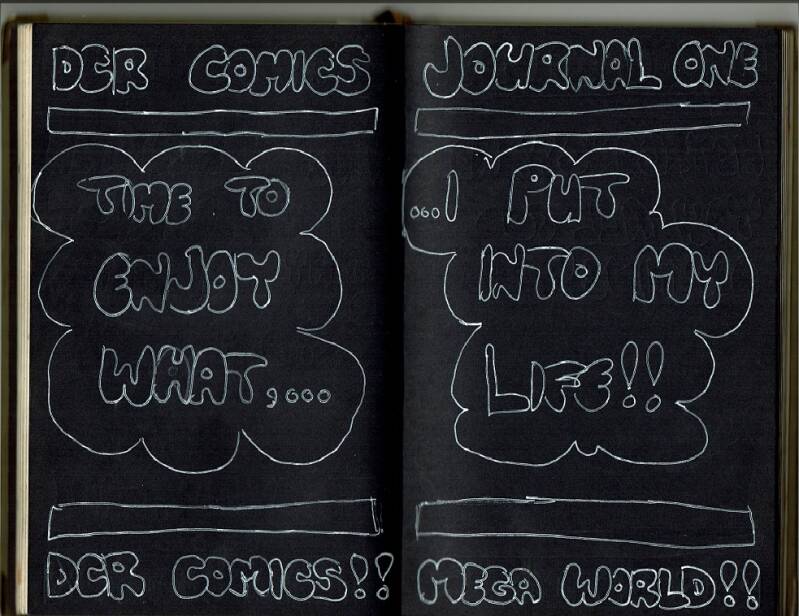 DCR COMICS
TIME TO
ENJOY
WHAT,...
DCR COMICS!!
JOURNAL ONE
...I PUT
INTO MY
LIFE!!
MEGA WORLD!!